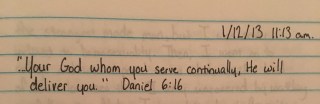 1/12/13 11:13 am.
"Your God whom you serve continually, He will
deliver you." Daniel 6:16